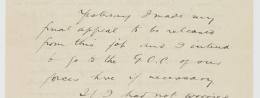 Yesterday I made my
final appeal to be released
from this job and I intend
to go to the G.O.C. of our
forces here if necessary.
If I had not worried